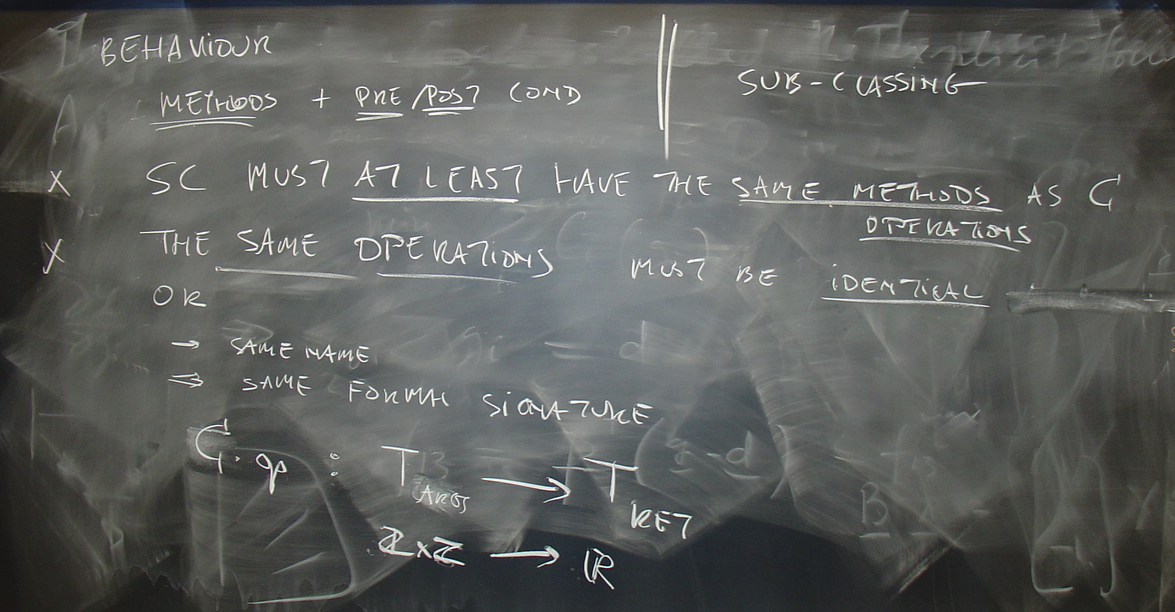 BEHAVIOUR
SUB-CLASSING
METHODS + PRE/POST COND
X SC MUST AT LEAST HAVE THE SAME METHODS AS C
OPERATIONS
X THE SAME OPERATIONS MUST BE IDENTICAL
OR
→ SAME NAME
⇒ SAME FORMAL SIGNATURE
C. op : T ARGS → T RET
ℤ×ℤ → ℝ